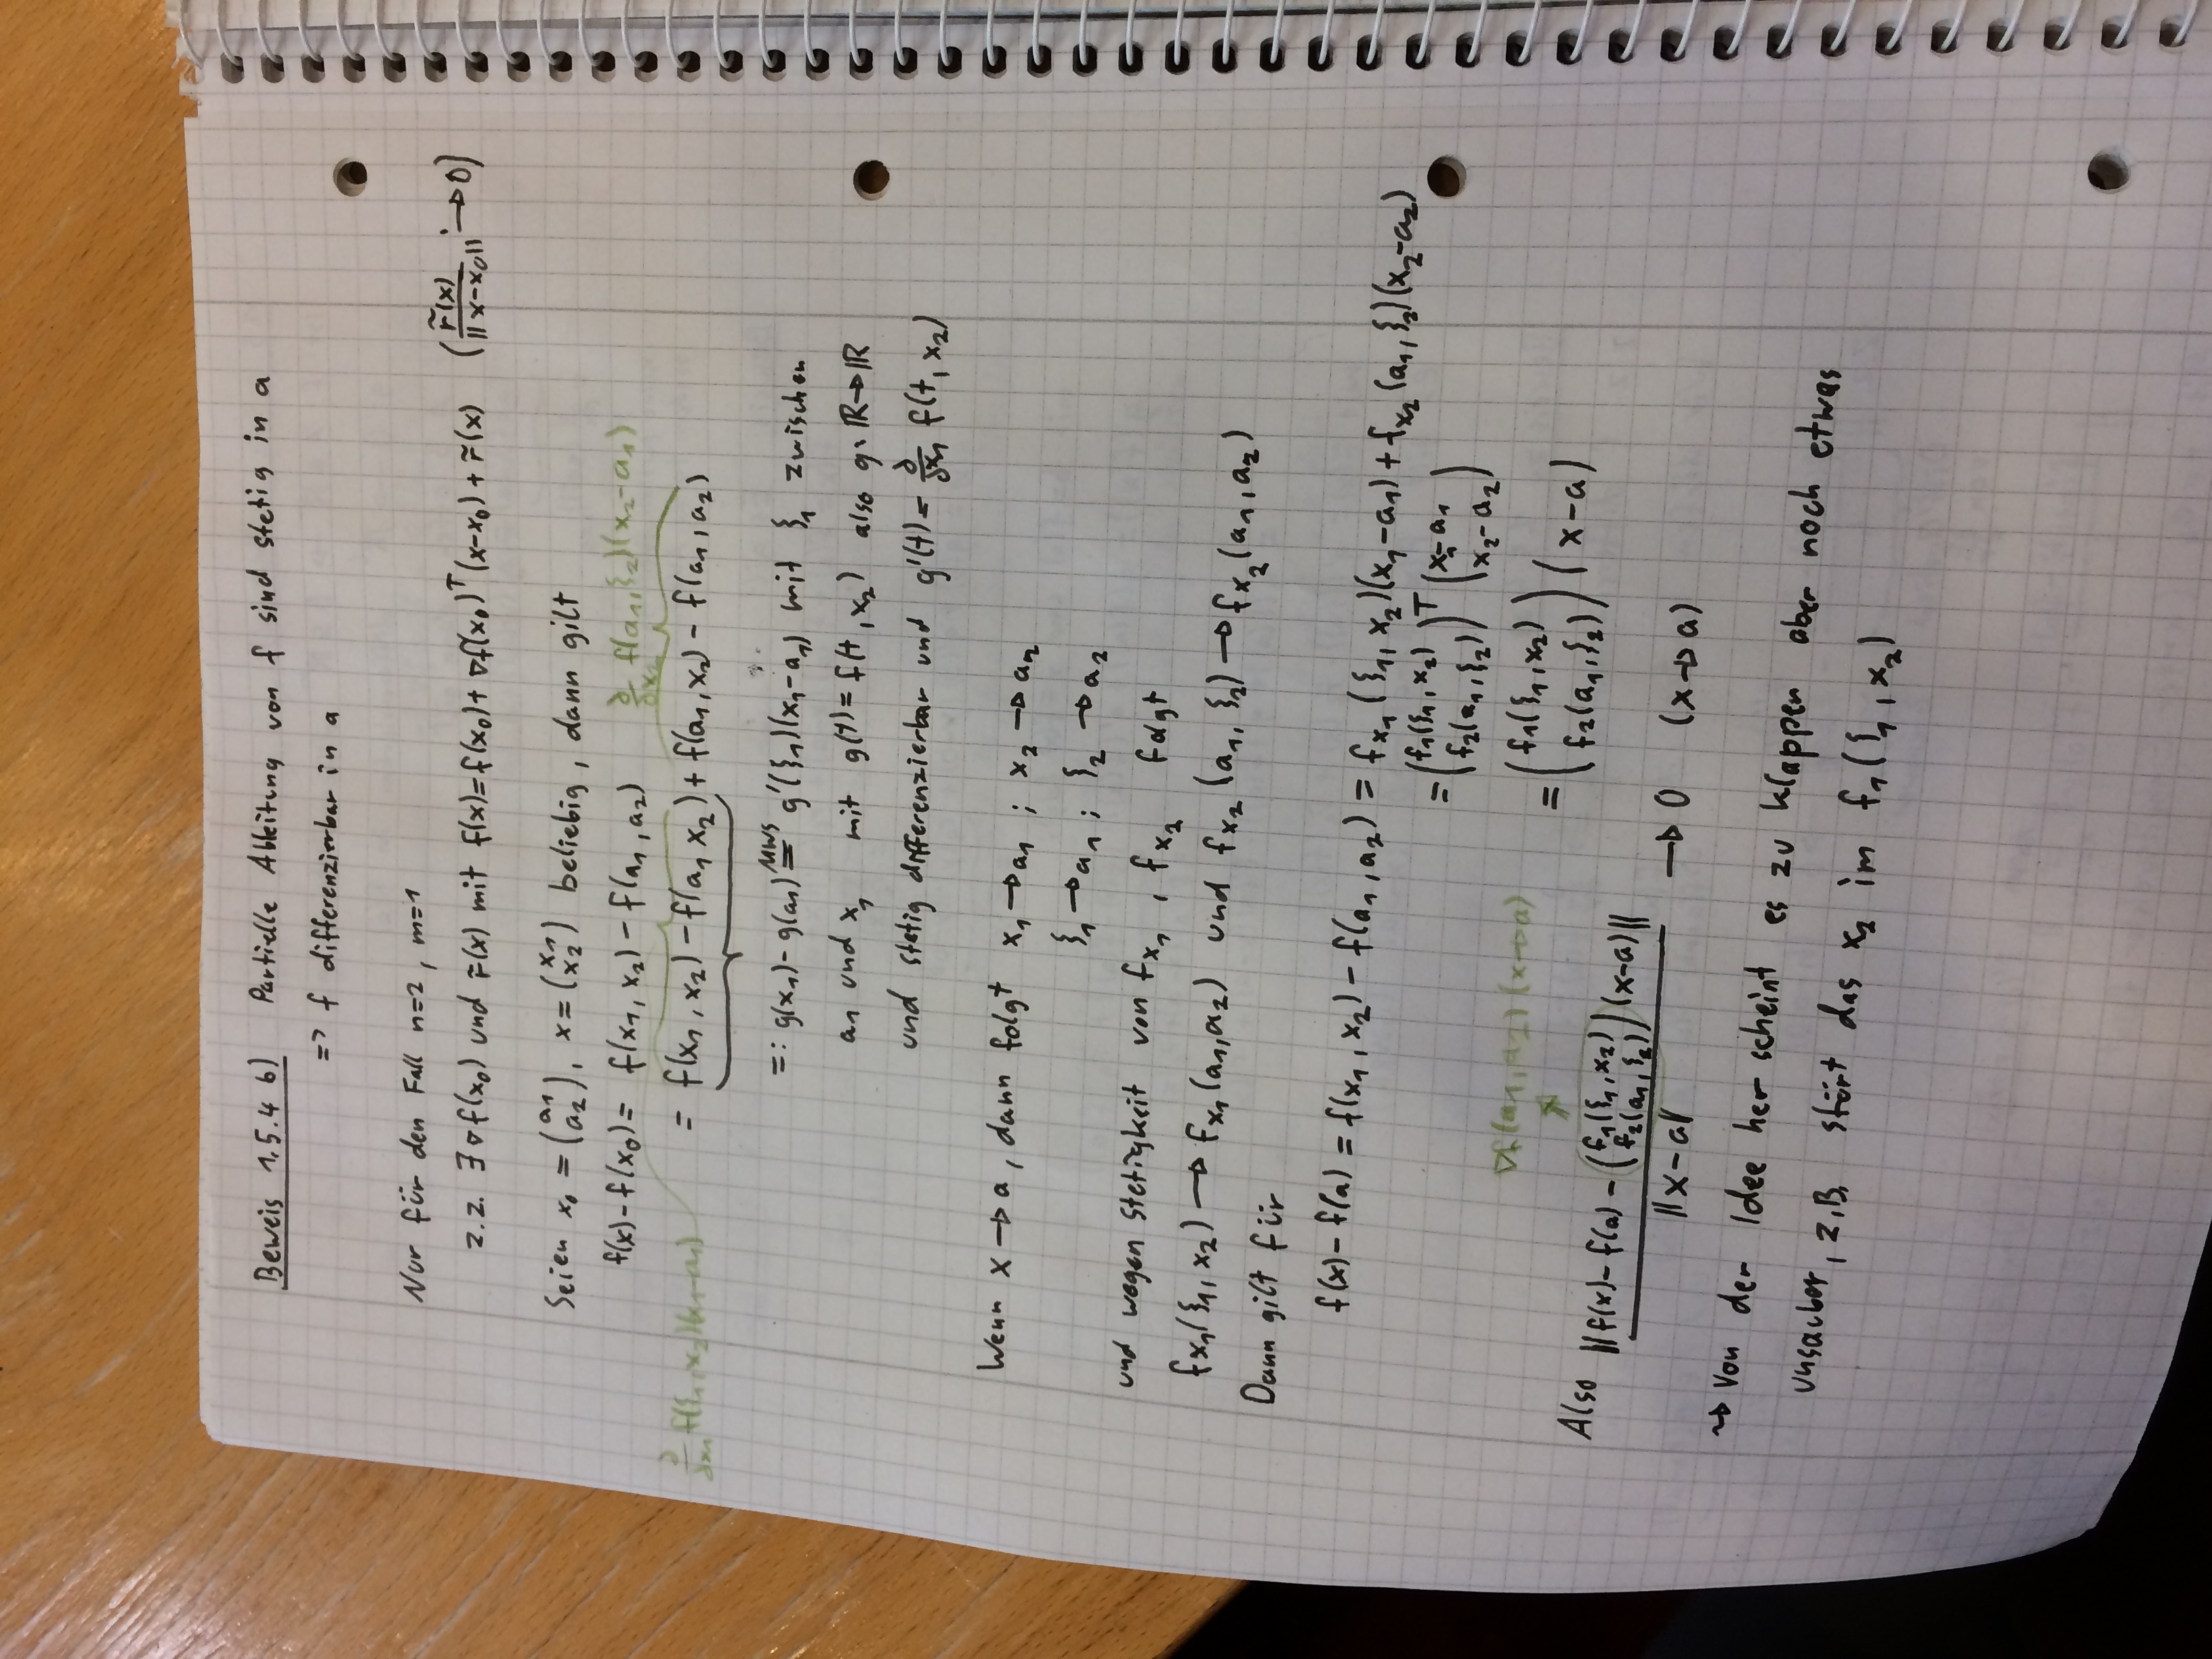 Beweis 1.5.4 b) Partielle Ableitung von f sind stetig in a
=> f differenzierbar in a
Nur für den Fall n=2, m=1
z.z. ∃ ∇f(x₀) und r̃(x) mit f(x)=f(x₀)+ ∇f(x₀)ᵀ(x-x₀) + r̃(x) (r̃(x)/||x-x₀|| → 0)
Seien x₀ = (a₁ a₂), x = (x₁ x₂) beliebig, dann gilt
f(x)-f(x₀) = f(x₁, x₂) - f(a₁, a₂) ∂/∂x₂ f(a₁, ξ₂)(x₂-a₁)
∂/∂x₁ f(ξ₁, x₂)(x₁-a₁) = f(x₁, x₂) - f(a₁ x₂) + f(a₁, x₂) - f(a₁, a₂)
=: g(x₁) - g(a₁) MWS = g'(ξ₁)(x₁-a₁) mit ξ₁ zwischen
a₁ und x₁ mit g(t) = f(t, x₂) also g: ℝ→ℝ
und stetig differenzierbar und g'(t) = ∂/∂x₁ f(t, x₂)
Wenn x → a, dann folgt x₁ → a₁ ; x₂ → a₂
ξ₁ → a₁ ; ξ₂ → a₂
und wegen Stetigkeit von fx₁ , fx₂ folgt
fx₁(ξ₁, x₂) → fx₁(a₁,a₂) und fx₂(a₁, ξ₂) → fx₂(a₁, a₂)
Dann gilt für
f(x) - f(a) = f(x₁, x₂) - f(a₁, a₂) = fx₁(ξ₁, x₂)(x₁-a₁) + fx₂(a₁, ξ₂)(x₂-a₂)
= (f₁(ξ₁, x₂) f₂(a₁, ξ₂))ᵀ (x₁-a₁ x₂-a₂)
∇f(a₁, a₂) (x→a)
= (f₁(ξ₁, x₂) f₂(a₁, ξ₂)) (x-a)
Also ||f(x) - f(a) - (f₁(ξ₁, x₂) f₂(a₁, ξ₂))(x-a)|| / ||x-a|| → 0 (x→a)
⇝ Von der Idee her scheint es zu klappen aber noch etwas
unsauber, z.B. stört das x₂ im f₁(ξ₁, x₂)